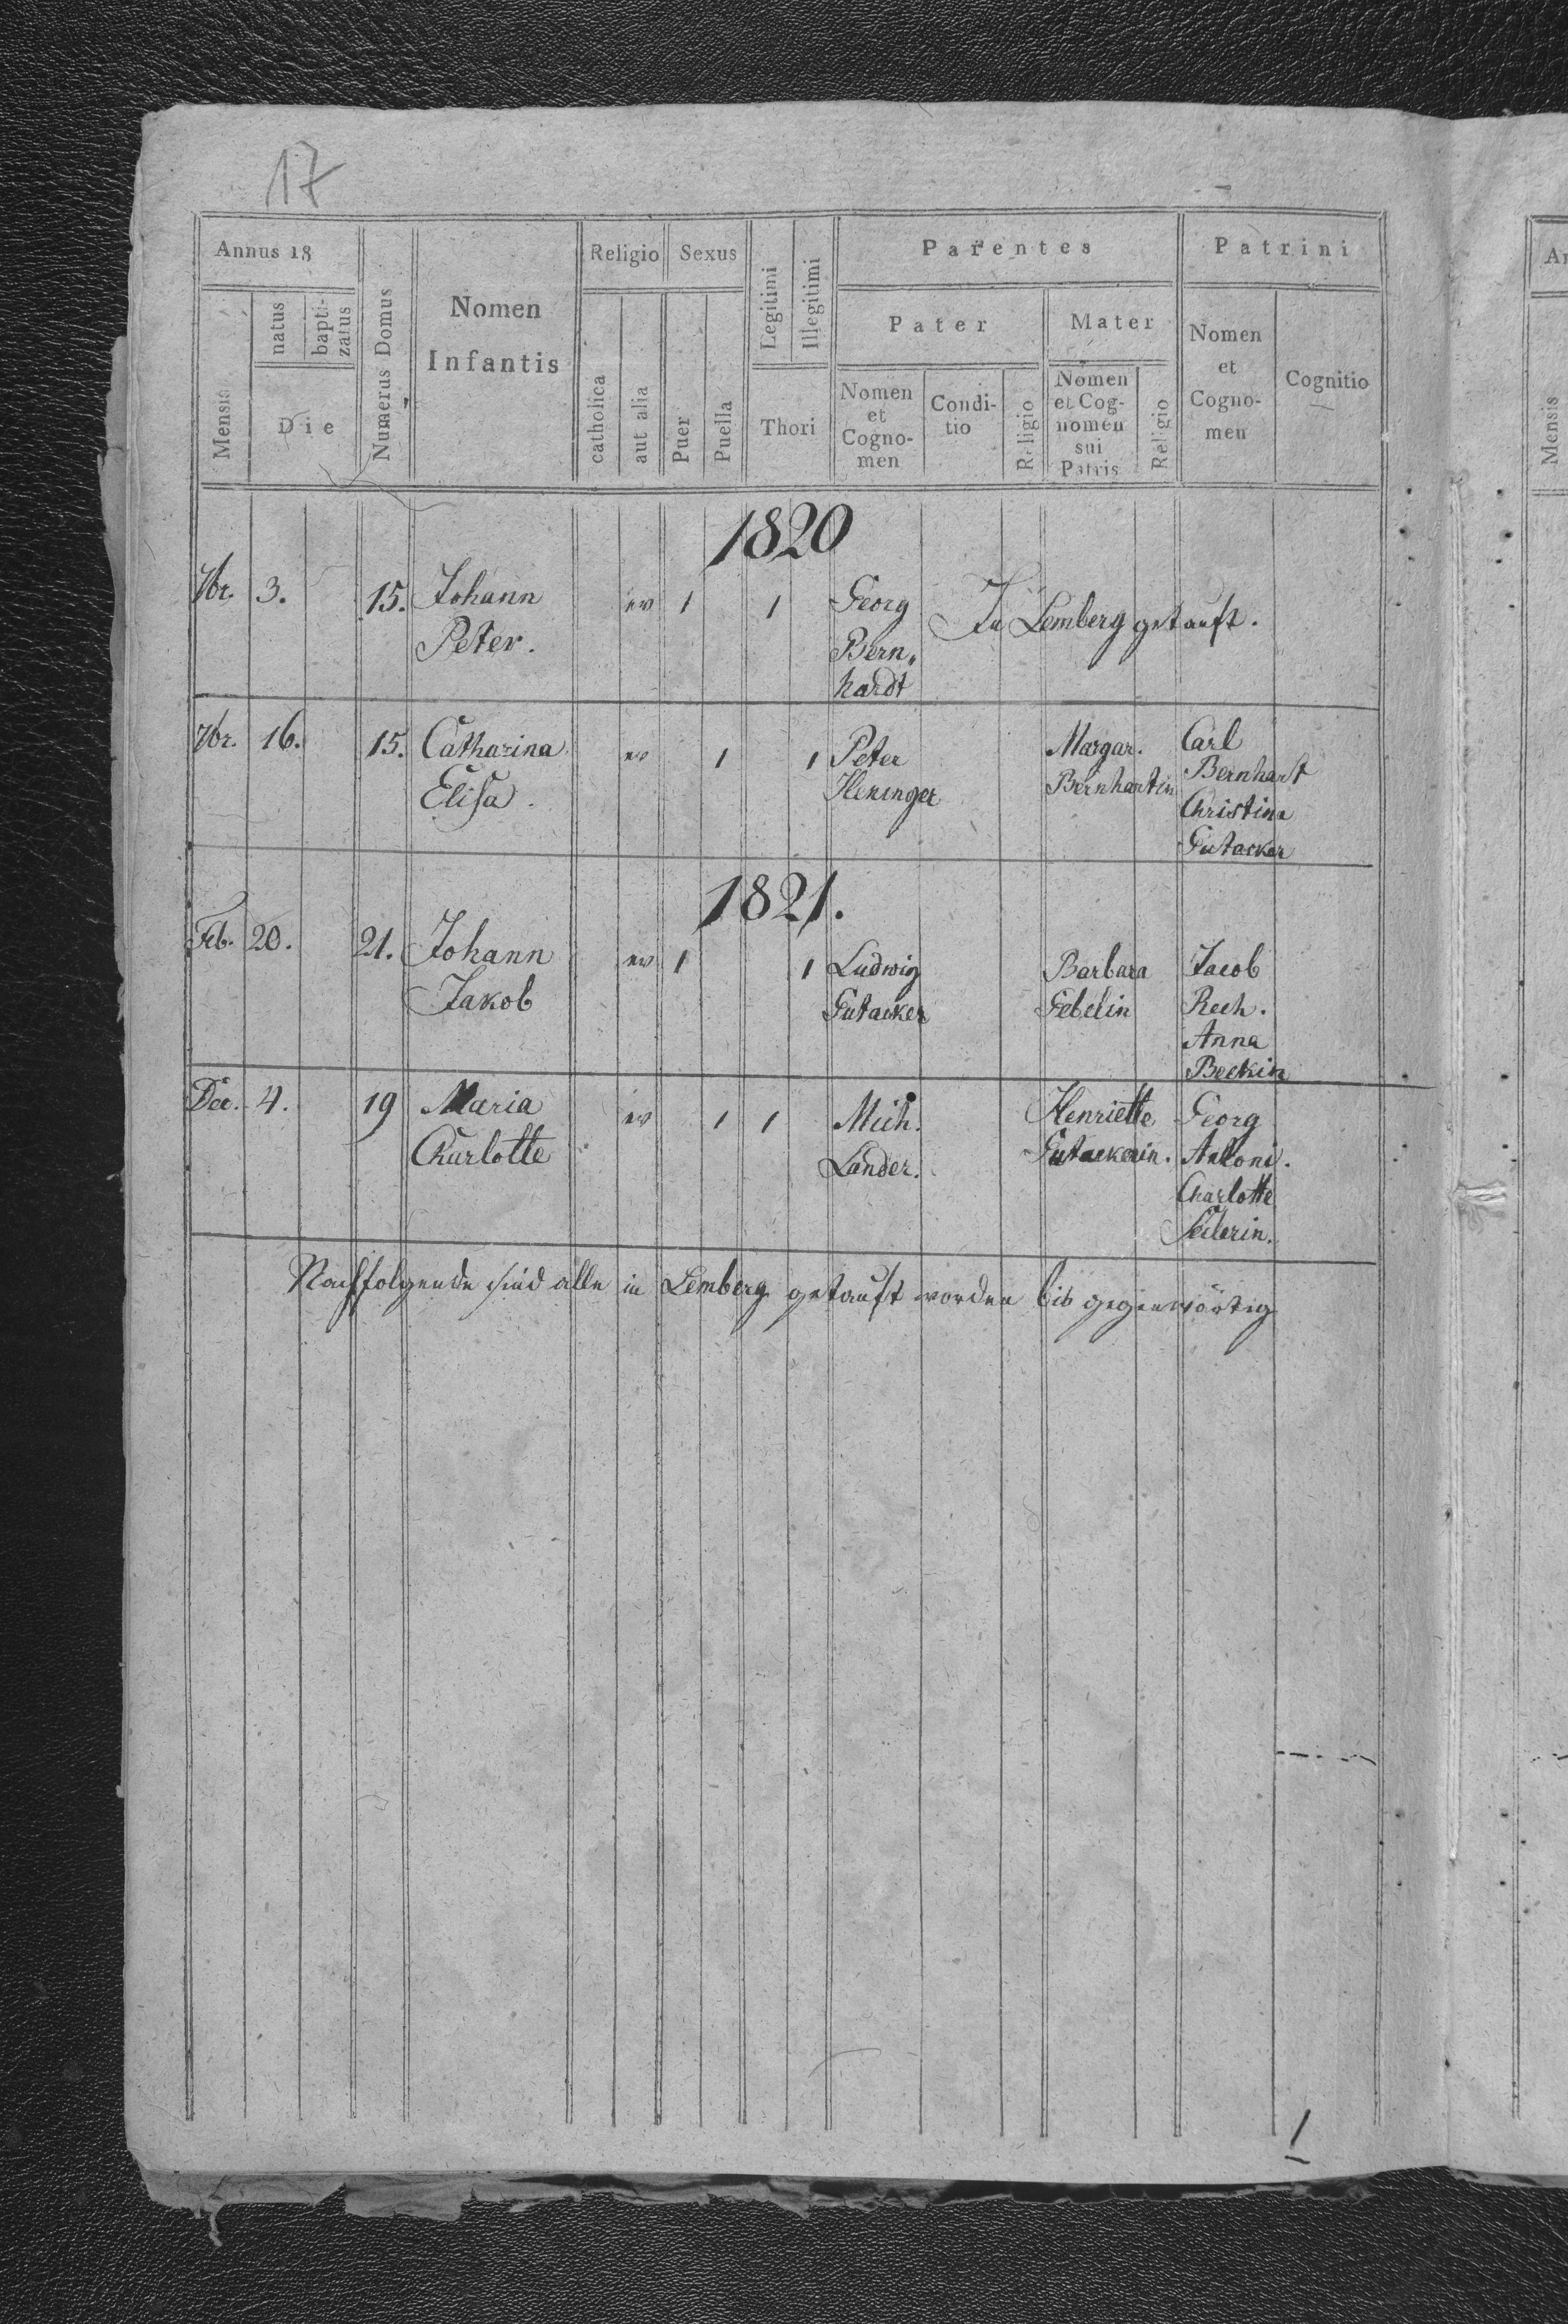 17
Annus 18
Mensis
natus
bapti-
zatus
Die
Numerus Domus
Nomen
Infantis
Religio
catholica
aut alia
Sexus
Puer
Puella
Legitimi
Illegitimi
Thori
Parentes
Pater
Nomen
et
Cogno-
men
Condi-
tio
Religio
Mater
Nomen
et Cog-
nomen
sui
Patris
Religio
Patrini
Nomen
et
Cogno-
men
Cognitio
Mensis
1820
7br. 3. 15. Johann ev 1 1 Georg In Lemberg getauft.
Peter. Bern„
hardt
7br. 16. 15. Catharina ev 1 1 Peter Margar. Carl
Elisa. Heninger Bernhartin Bernhart
Christina
Gutacker
1821.
Feb. 20. 21. Johann ev 1 1 Ludwig Barbara Jacob
Jakob Gutacker Gebelin Rech.
Anna
Beckin
Dec. 4. 19 Maria ev 1 1 Mich. Henriette Georg
Charlotte Lander. Gutackerin. Antoni.
Charlotte
Nachfolgende sind alle in Lemberg getauft worden bis gegenwärtig
1